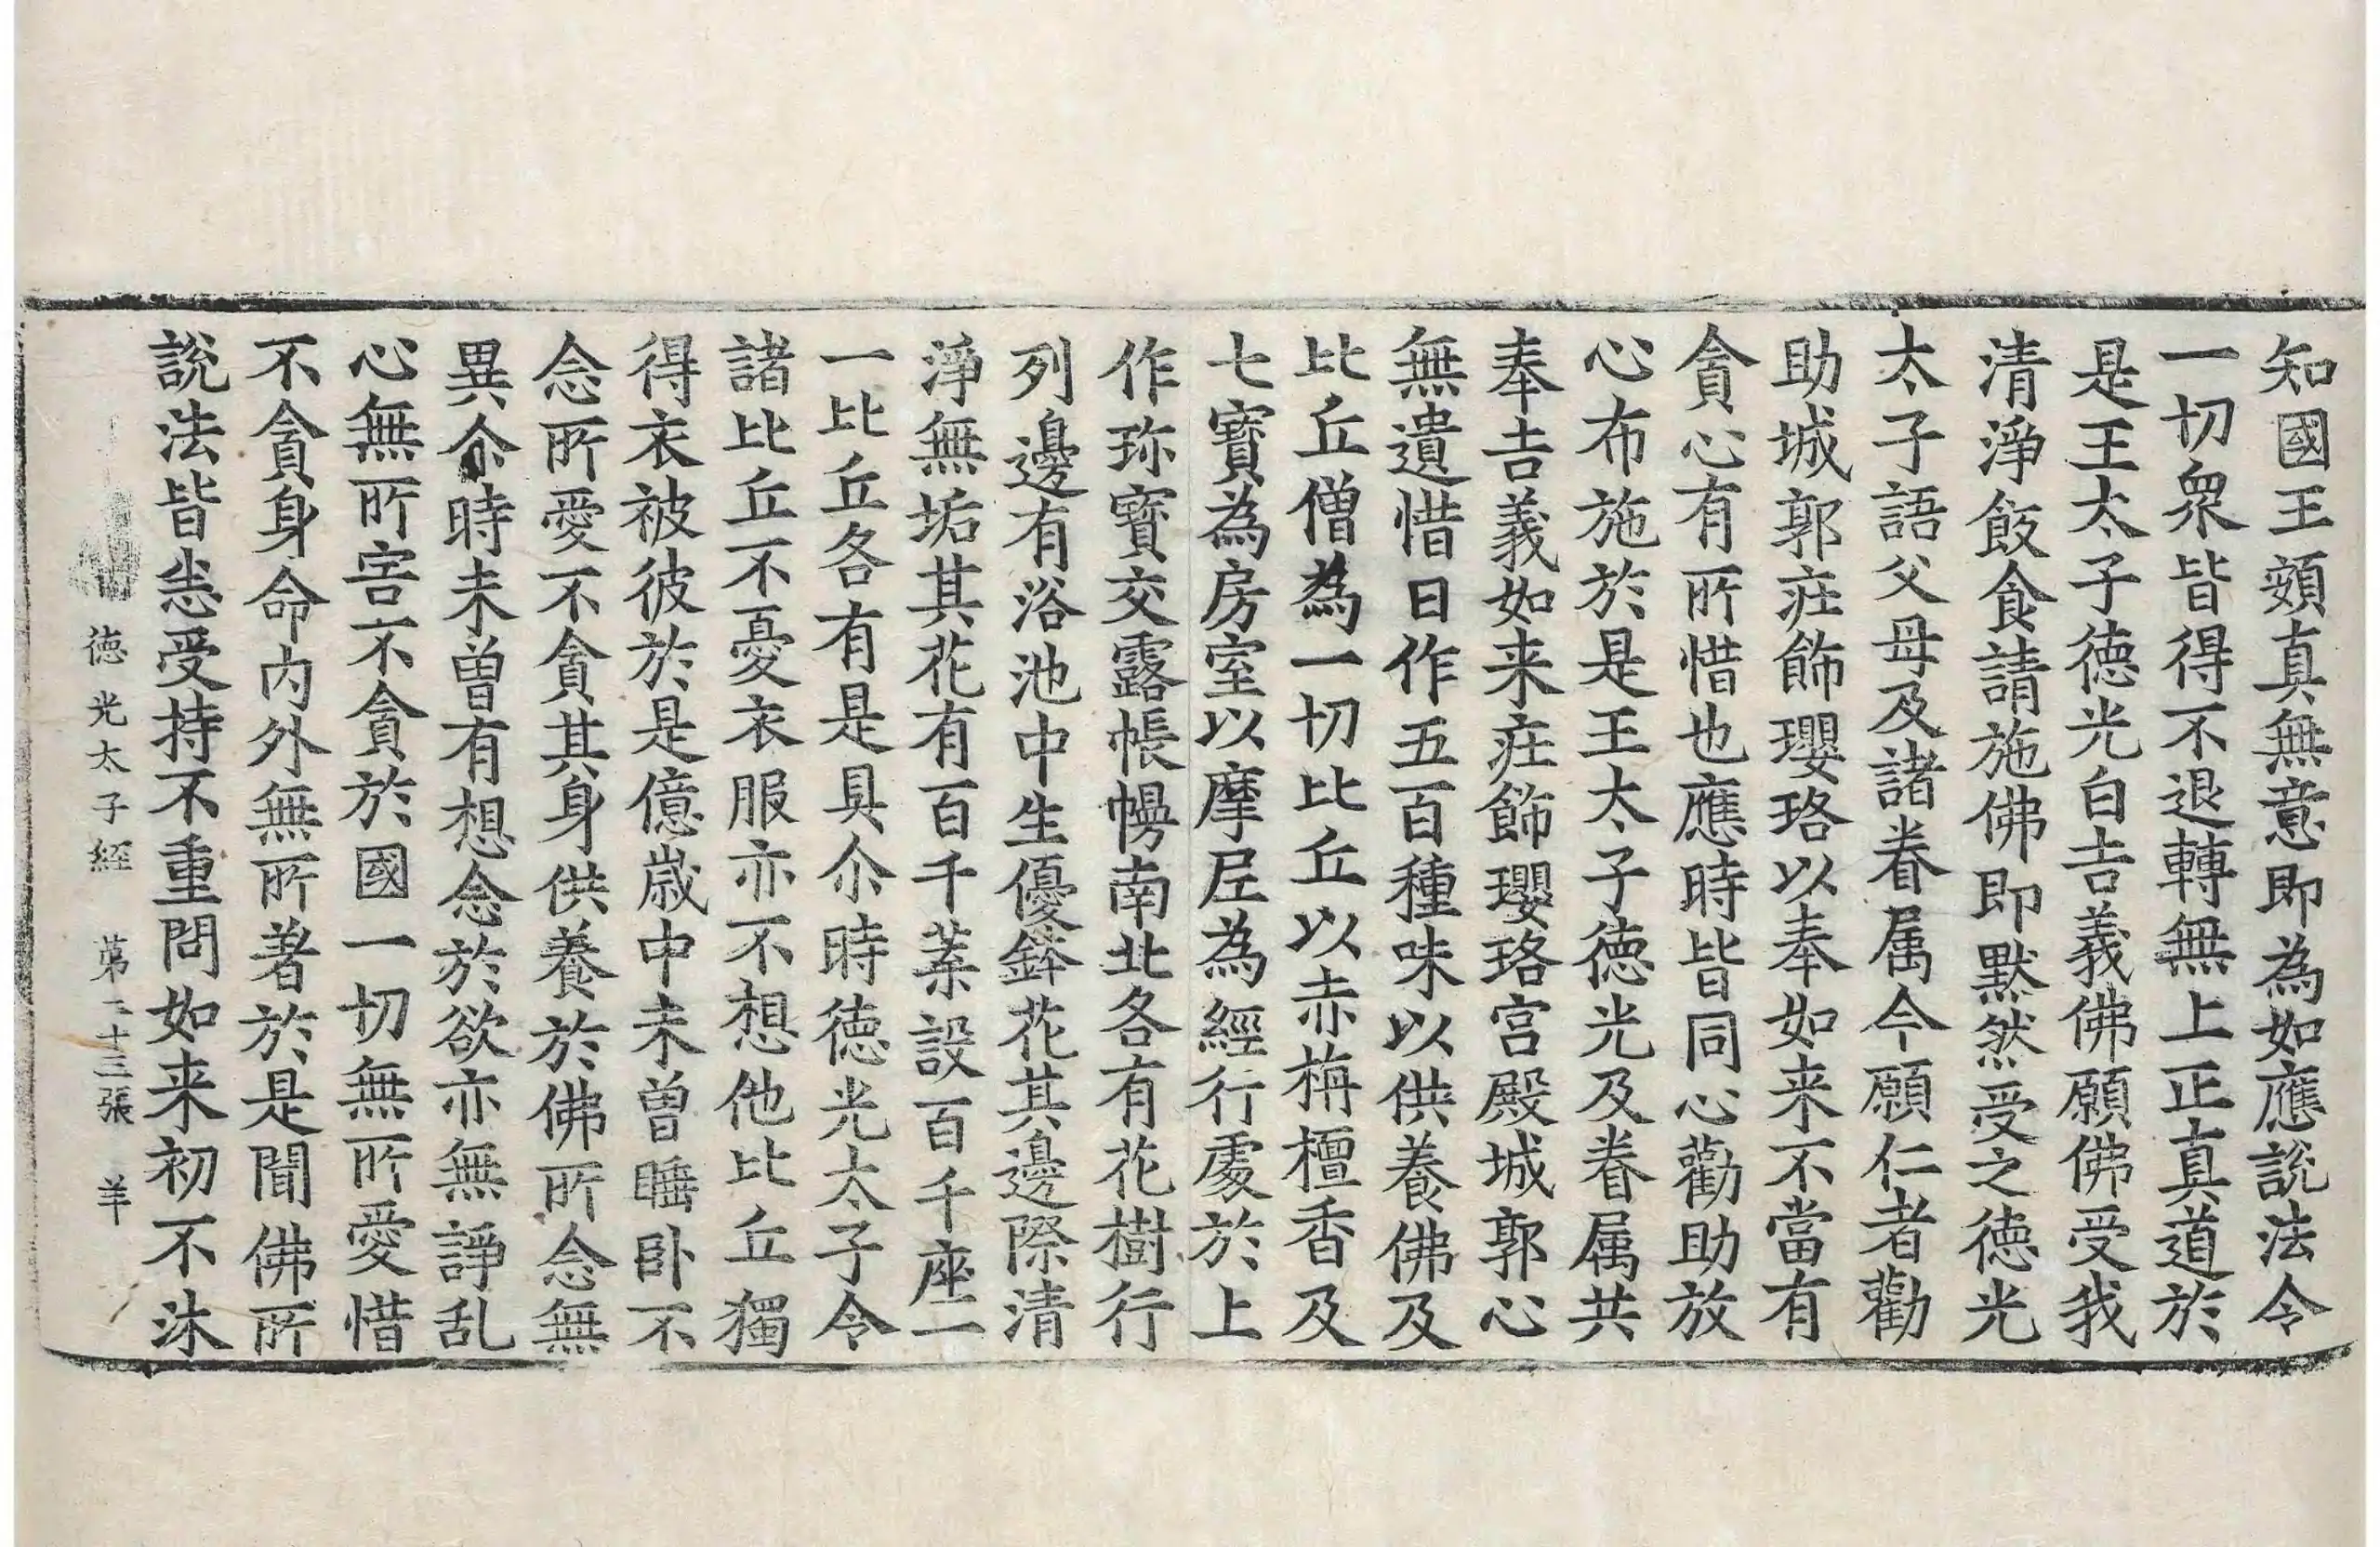 知國王頞真無意即為如應說法令
一切衆皆得不退轉無上正真道於
是王太子徳光白吉義佛願佛受我
清淨飯食請施佛即默然受之徳光
太子語父母及諸眷属今願仁者勸
助城郭庄飾瓔珞以奉如来不當有
貪心有所惜也應時皆同心勸助放
心布施於是王太子徳光及眷属共
奉吉義如来庄飾瓔珞宫殿城郭心
無遺惜日作五百種味以供養佛及
比丘僧為一切比丘以赤栴檀香及
七寳為房室以摩尼為經行處於上
作珎寳交露帳幔南北各有花樹行
列邊有浴池中生優鉢花其邊際清
淨無垢其花有百千葉設百千座一
一比丘各有是具尒時徳光太子令
諸比丘不憂衣服亦不想他比丘獨
得衣被彼於是億歳中未曽睡卧不
念所愛不貪其身供養於佛所念無
異尒時未曽有想念於欲亦無諍乱
心無所害不貪於國一切無所愛惜
不貪身命内外無所著於是聞佛所
說法皆悉受持不重問如来初不沐
徳光太子經 苐二十三張 羊